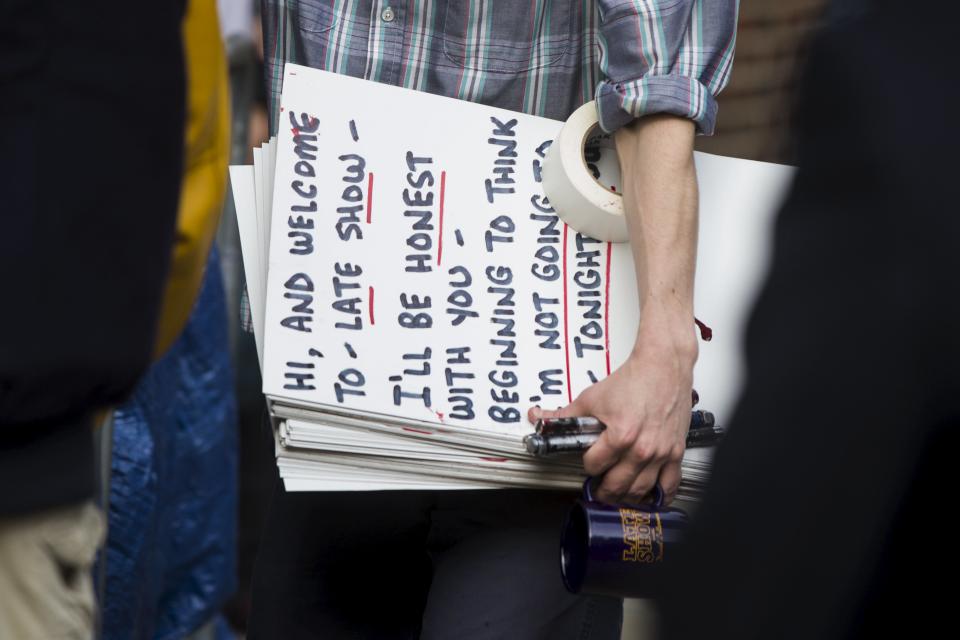 HI, AND WELCOME
TO - LATE SHOW -
I'LL BE HONEST
WITH YOU -
BEGINNING TO THINK
I'M NOT GOING TO
- TONIGHT
LATE
SHOW